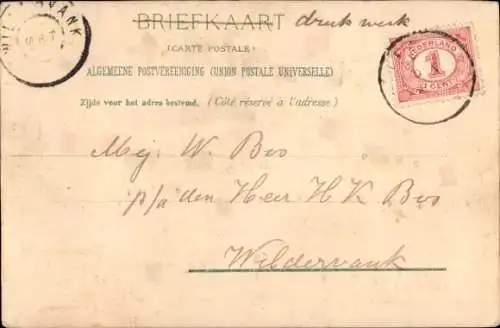 BRIEFKAART druk werk
(CARTE POSTALE)
ALGEMEENE POSTVEREENIGING (UNION POSTALE UNIVERSELLE)
Zijde voor het adres bestemd. (Côté réservé à l'adresse)
NEDERLAND
1
CENT
Mej. W. Bos
p/a den Heer H K Bos
Wildervank